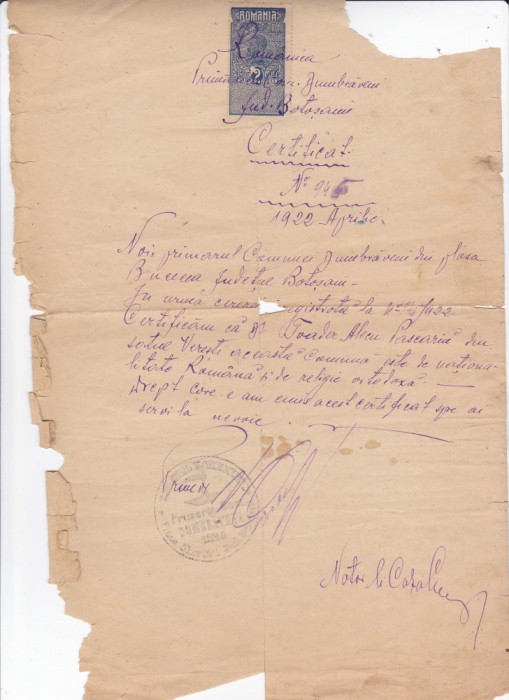 ROMANIA
Romania
Primăria Com. Dumbrăveni
Jud. Botoșani
Certificat
No 945
1922 Aprilie
Noi primarul Comunei Dumbrăveni din plasa
Bucecea Județul Botoșani
In urma cererei registrată la 1922
Certificăm că Dl Toader Alecu Pascariu din
satul Verești această Comună este de naționa-
litate Română și de religie ortodoxă
Drept care am emis acest certificat spre ai
servi la nevoie.
Primar
Notar